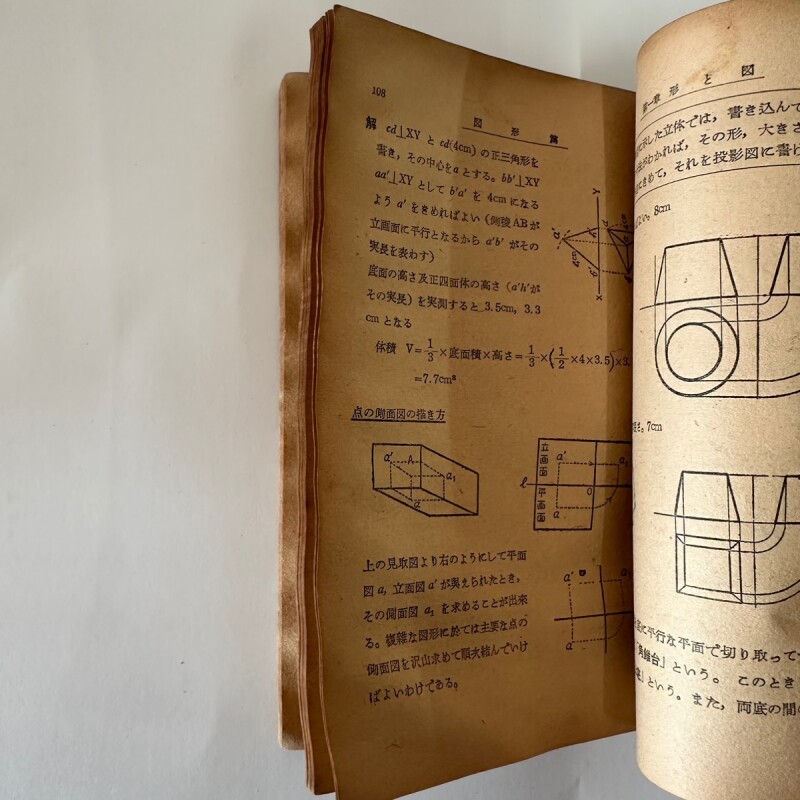 108
図形篇
解 cd⊥XY と cd(4cm) の正三角形を
書き，その中心をaとする。bb'⊥XY
aa'⊥XY として b'a' を 4cm になる
よう a' をきめればよい（側稜ABが
立画面に平行となるから a'b' がその
実長を表わす）
底面の高さ及正四面体の高さ（a'h'が
その実長）を実測すると 3.5cm，3.3
cm となる
体積 V=1/3×底面積×高さ=1/3×(1/2×4×3.5)×3.
=7.7cm³
点の側面図の描き方
a' A a₁ a
立画面 a' a₁
l 平画面 O a
上の見取図より右のようにして平面
図 a，立面図 a' が与えられたとき，
その側面図 a₁ を求めることが出来
る。複雑な図形に於ては主要な点の
側面図を沢山求めて順次結んでいけ
ばよいわけである。
Y
X
a' a₁
a
第一章 形と図
した立体では，書き込んで
わかれば，その形，大きさ
きめて，それを投影図に書け
よい。8cm
7cm
に平行な平面で切り取って
「角錐台」という。このとき
」という。また，両底の間の